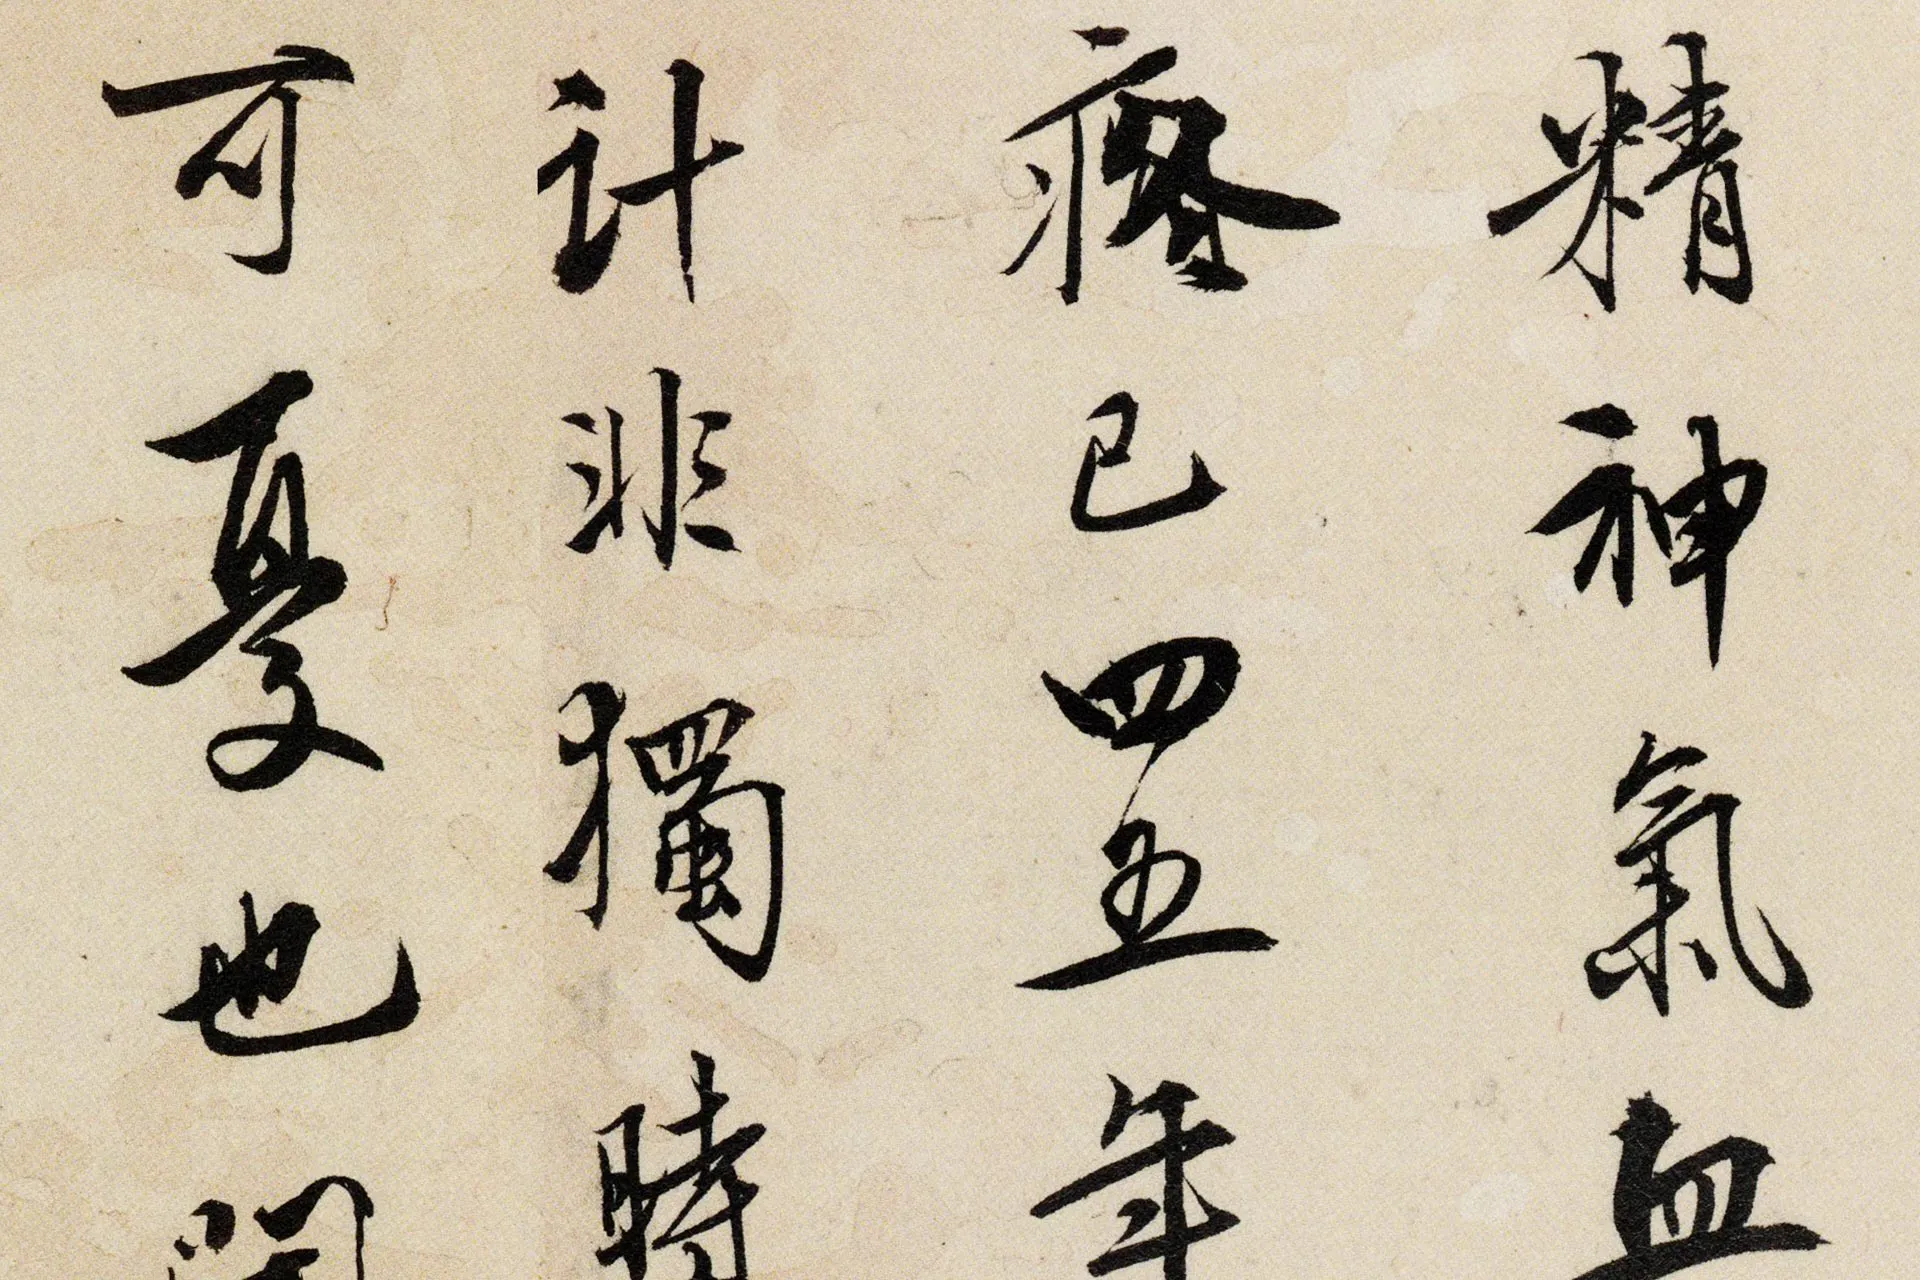 精神氣血
疼已四五年
計非獨時
可憂也